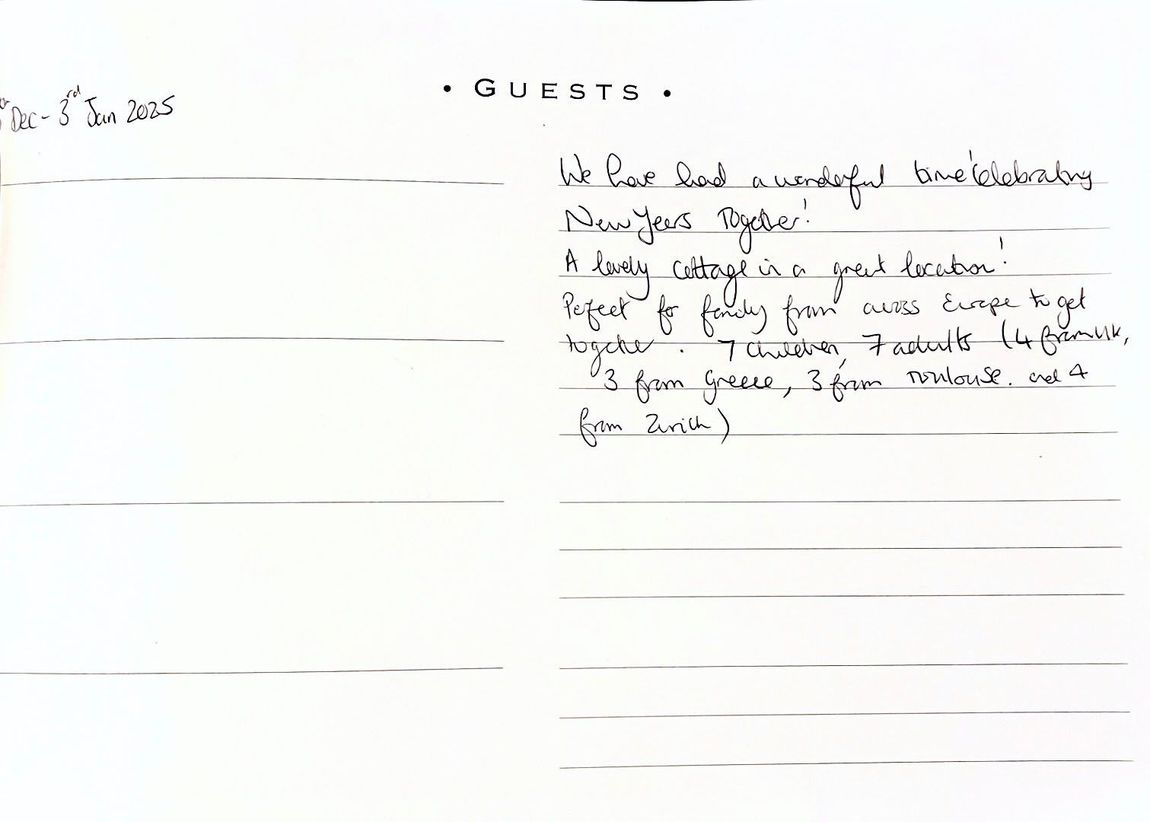 • GUESTS •
Dec - 3rd Jan 2025
We have had a wonderful time celebrating
New Years Together!
A lovely cottage in a great location!
Perfect for family from across Europe to get
together. 7 children, 7 adults (4 from UK,
3 from Greece, 3 from Toulouse. and 4
from Zurich)